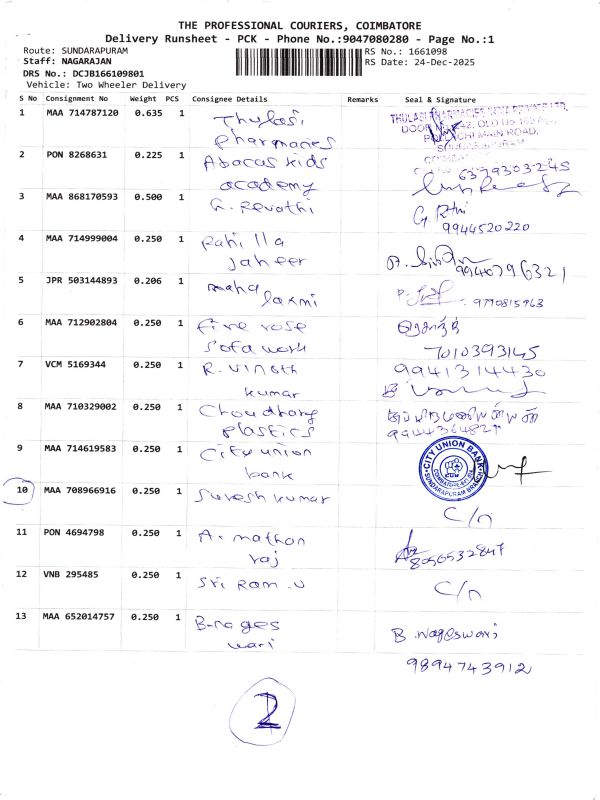 THE PROFESSIONAL COURIERS, COIMBATORE
Delivery Runsheet - PCK - Phone No.:9047080280 - Page No.:1
Route: SUNDARAPURAM
RS No.: 1661098
Staff: NAGARAJAN
RS Date: 24-Dec-2025
DRS No.: DCJB166109801
Vehicle: Two Wheeler Delivery
S No Consignment No Weight PCS Consignee Details Remarks Seal & Signature
1 MAA 714787120 0.635 1 Thulasi
pharmacies
MAIN ROAD,
SUNDARAPURAM
2 PON 8268631 0.225 1 Abacus kids
academy
6379303245
3 MAA 868170593 0.500 1 G. Revathi
9944520220
4 MAA 714999004 0.250 1 Rahilla
jaheer
9940796321
5 JPR 503144893 0.206 1 maha
laxmi
9790815963
6 MAA 712902804 0.250 1 fire rose
Sofa work
7010393145
7 VCM 5169344 0.250 1 R. vinoth
kumar
9941314430
8 MAA 710329002 0.250 1 Choudhary
plastics
9 MAA 714619583 0.250 1 City union
bank
CITY UNION BANK
SUNDARAPURAM BRANCH
10 MAA 708966916 0.250 1 Suresh kumar
C/n
11 PON 4694798 0.250 1 A. mathan
raj
8056532847
12 VNB 295485 0.250 1 Sri Ram .U
C/n
13 MAA 652014757 0.250 1 B.nages
wari
B. nageswari
9894743912
2